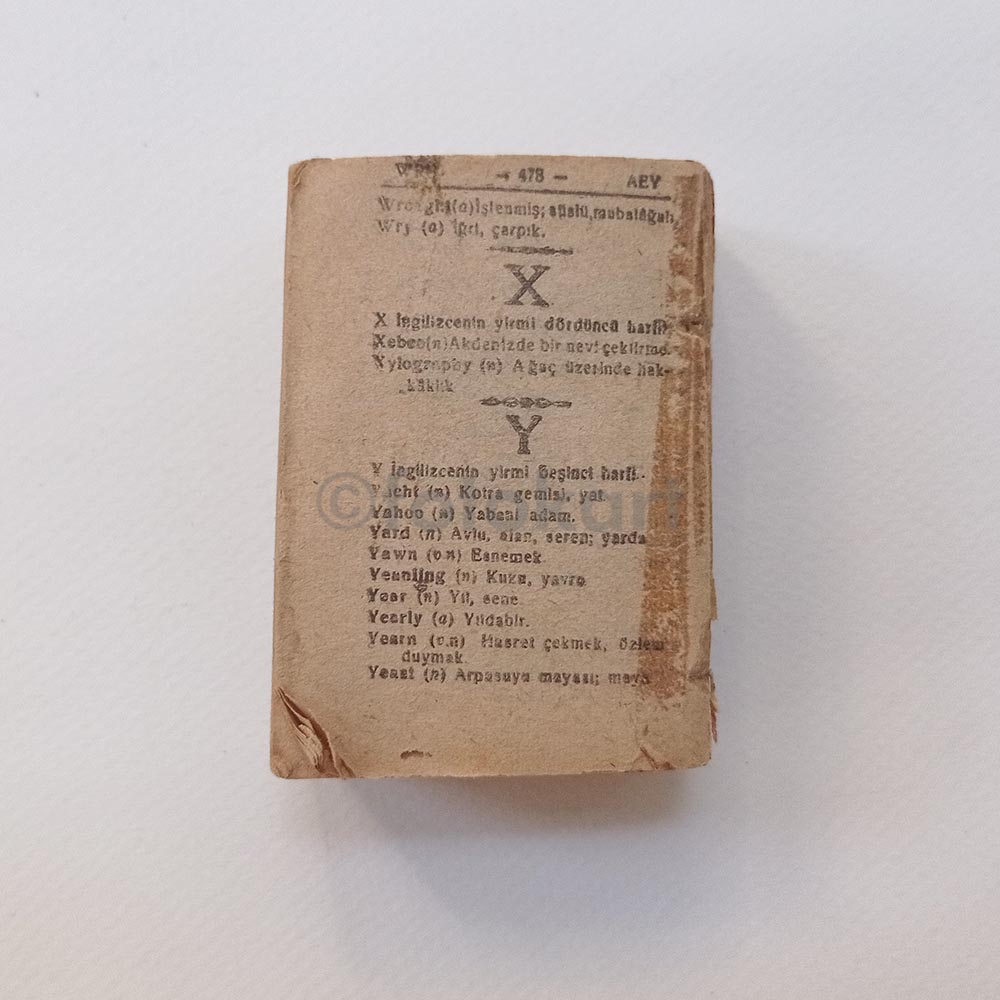 — 478 —
Wrought (a) İşlenmiş; süslü, mubalâğalı
Wry (a) İğri, çarpık.
X
X İngilizcenin yirmi dördüncü harfi.
Xebec (n) Akdenizde bir nevi çektirme.
Xylography (n) Ağaç üzerinde hak-
kâklık
Y
Y İngilizcenin yirmi beşinci harfi.
Yacht (n) Kotra gemisi, yat
Yahoo (n) Yabani adam.
Yard (n) Avlu, alan, seren; yarda
Yawn (v.n) Esnemek.
Yeanling (n) Kuzu, yavru
Year (n) Yıl, sene.
Yearly (a) Yıldabir.
Yearn (v.n) Hasret çekmek, özlem
duymak.
Yeast (n) Arpasuyu mayası; maya